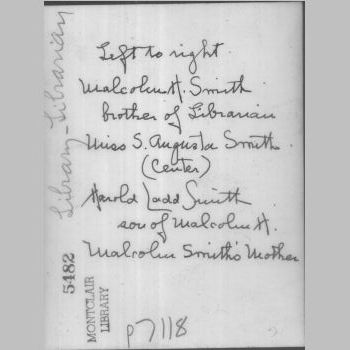 Left to right.
Malcolm H. Smith
brother of Librarian
Miss S. Augusta Smith
(Center)
Harold Ladd Smith
son of Malcolm H.
Malcolm Smith's Mother
Library-Librarian
5482
MONTCLAIR
LIBRARY
p7118